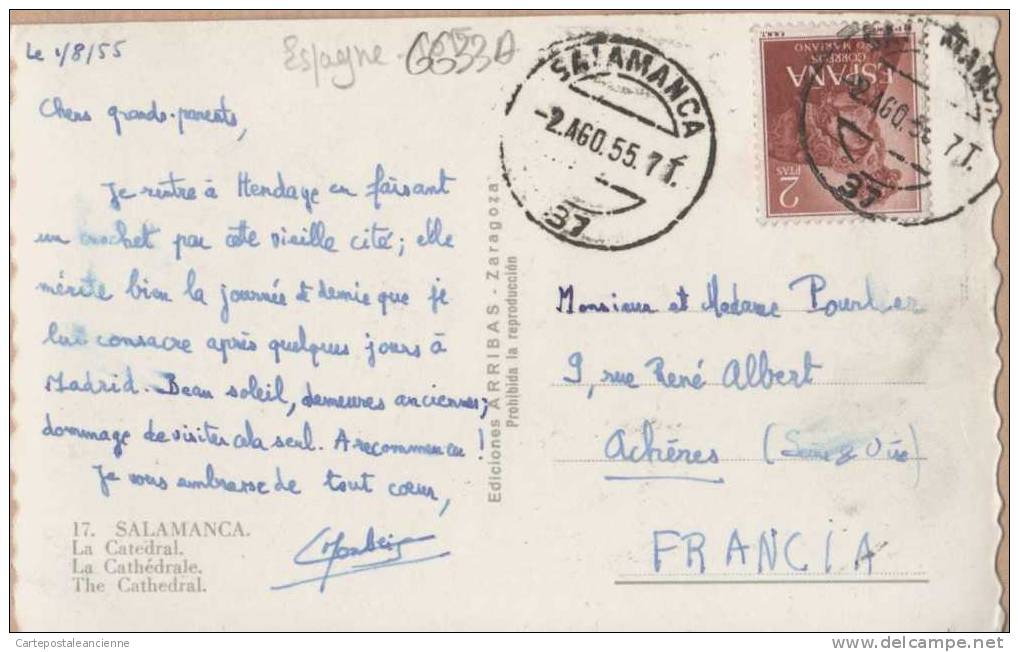 Le 1/8/55
Espagne
Chers grands-parents,
Je rentre à Hendaye en faisant
un crochet par cette vieille cité; elle
mérite bien la journée et demie que je
lui consacre après quelques jours à
Madrid. Beau soleil, demeures anciennes;
dommage de visiter cela seul. A recommencer!
Je vous embrasse de tout cœur,
17. SALAMANCA.
La Catedral.
La Cathédrale.
The Cathedral.
Ediciones ARRIBAS - Zaragoza
Prohibida la reproducción
SALAMANCA
-2.AGO.55.7T.
37
ESPAÑA
CORREOS
AÑO MARIANO
2
PTAS
-2.AGO.55 7T.
37
Monsieur et Madame
9, rue René Albert
Achères (Seine & Oise)
FRANCIA
Cartepostaleancienne
www.delcampe.net